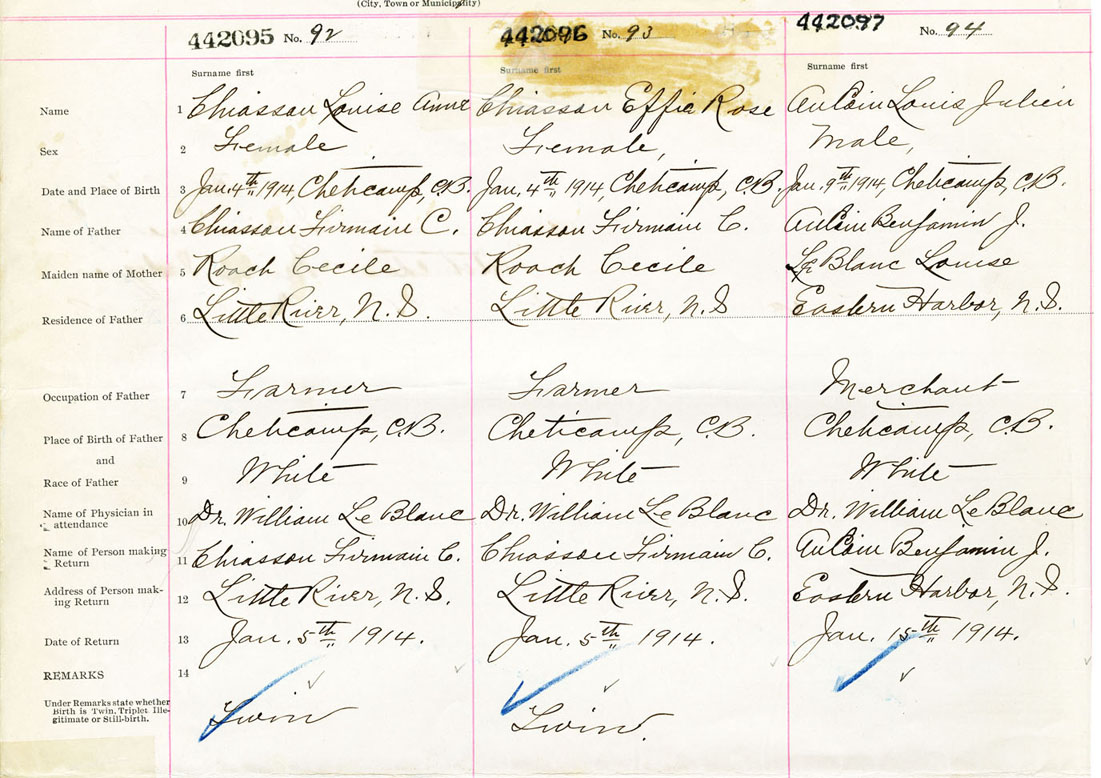 (City, Town or Municipality)
442095 No. 92 442096 No. 93 442097 No. 94
Surname first Surname first Surname first
Name 1 Chiasson Louise Anne Chiasson Effie Rose AuCoin Louis Julien
Sex 2 Female Female, Male,
Date and Place of Birth 3 Jan. 4th 1914, Cheticamp, C.B. Jan. 4th 1914, Cheticamp, C.B. Jan. 9th 1914, Cheticamp, C.B.
Name of Father 4 Chiasson Firmain C. Chiasson Firmain C. AuCoin Benjamin J.
Maiden name of Mother 5 Roach Cecile Roach Cecile Le Blanc Louise
Residence of Father 6 Little River, N.S. Little River, N.S Eastern Harbor, N.S.
Occupation of Father 7 Farmer Farmer Merchant
Place of Birth of Father 8 Cheticamp, C.B. Cheticamp, C.B. Cheticamp, C.B.
and
Race of Father 9 White White White
Name of Physician in attendance 10 Dr. William Le Blanc Dr. William Le Blanc Dr. William Le Blanc
Name of Person making Return 11 Chiasson Firmain C. Chiasson Firmain C. AuCoin Benjamin J.
Address of Person making Return 12 Little River, N.S. Little River, N.S. Eastern Harbor, N.S.
Date of Return 13 Jan. 5th 1914. Jan. 5th 1914. Jan. 15th 1914.
REMARKS 14
Under Remarks state whether Birth is Twin, Triplet, Illegitimate or Still-birth. Twin Twin.